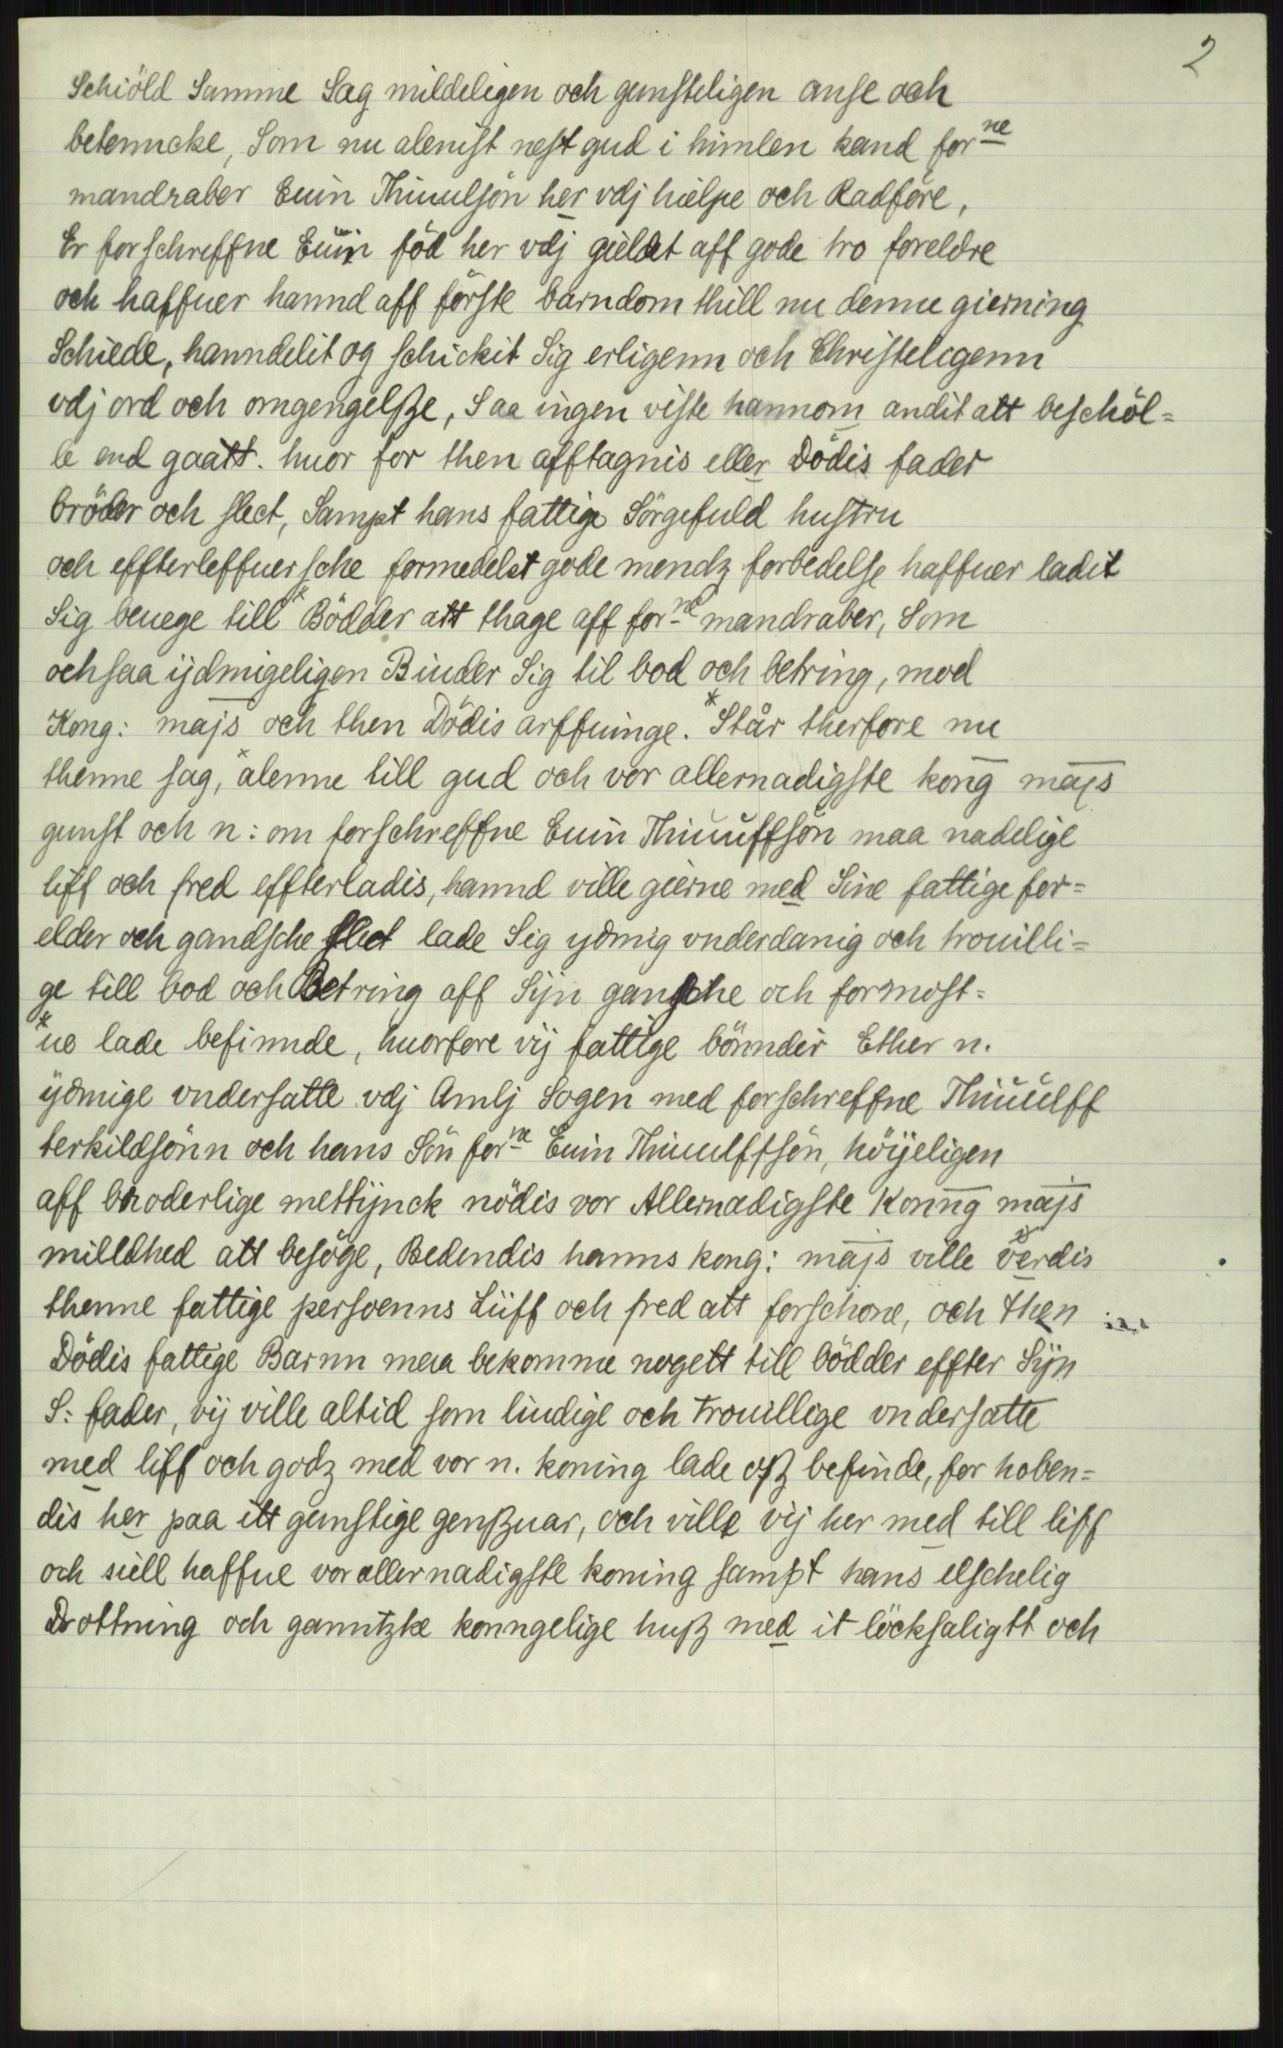 2
Schiöld Samme Sag mildeligen och gunsteligen anse och
betenncke, Som nu alenist nest gud i himlen kand for ne
mandraber Euin Thiuulsön her vdj hielpe och Radföre,
Er forschreffne Euin föd her vdj gieldet aff gode tro foreldre
och haffuer hannd aff förste barndom thill nu denne gierning
Schiede, hanndelit og schickit Sig erligenn och Christeligenn
vdj ord och omgengelsze, Saa ingen viste hannom andit att beschöl=
le end gaatt. huor for then afftagnis eller Dödis fader
bröder och slect, Sampt hans fattige Sörgefuld hustru
och effterleffuersche formedelst gode mendz forbedelse haffuer ladit
Sig beuege till * Bödder att thage aff for ne mandraber, Som
och saa ijdmigeligen Binder Sig til bod och betring, mod
Kong: majs och then Dödis arffuinge. * Står therfore nu
thenne sag, * alenne till gud och vor allernadigste kong majs
gunst och n: om forschreffne Euin Thiuuffsön maa nadelige
liff och fred effterladis, hannd ville gierne med Sine fattige for=
elder och gandsche slect lade Sig ydmig vnderdanig och trouilli=
ge till bod och Betring aff Sijn gansche och formost=
* ue lade befinnde, huorfore vij fattige bönnder Ether n.
ÿdmige vndersatte vdj Amlj Sogen med forschreffne Thiuulff
terkildsönn och hans Sön for ne Euin Thiuulffsön, höijeligen
aff broderlige mettijnck nödis vor Allernadigste Konng majs
milldhed att besöge, Bedendis hanns kong: majs ville verdis
thenne fattige persoenns Liiff och fred att forschone, och then
Dödis fattige Barnn maa bekomme nogett till bödder effter Sijn
S: fader, vij ville altid som lindige och trouillige vndersatte
med liff och godz med vor n. koning lade osz befinde, for hoben=
dis her paa itt gunstige genszuar, och ville vij her med till liff
och siell haffue vor allernadigste koning sampt hans elschelig
Drottning och ganntzke konngelige husz med it löcksaligtt och